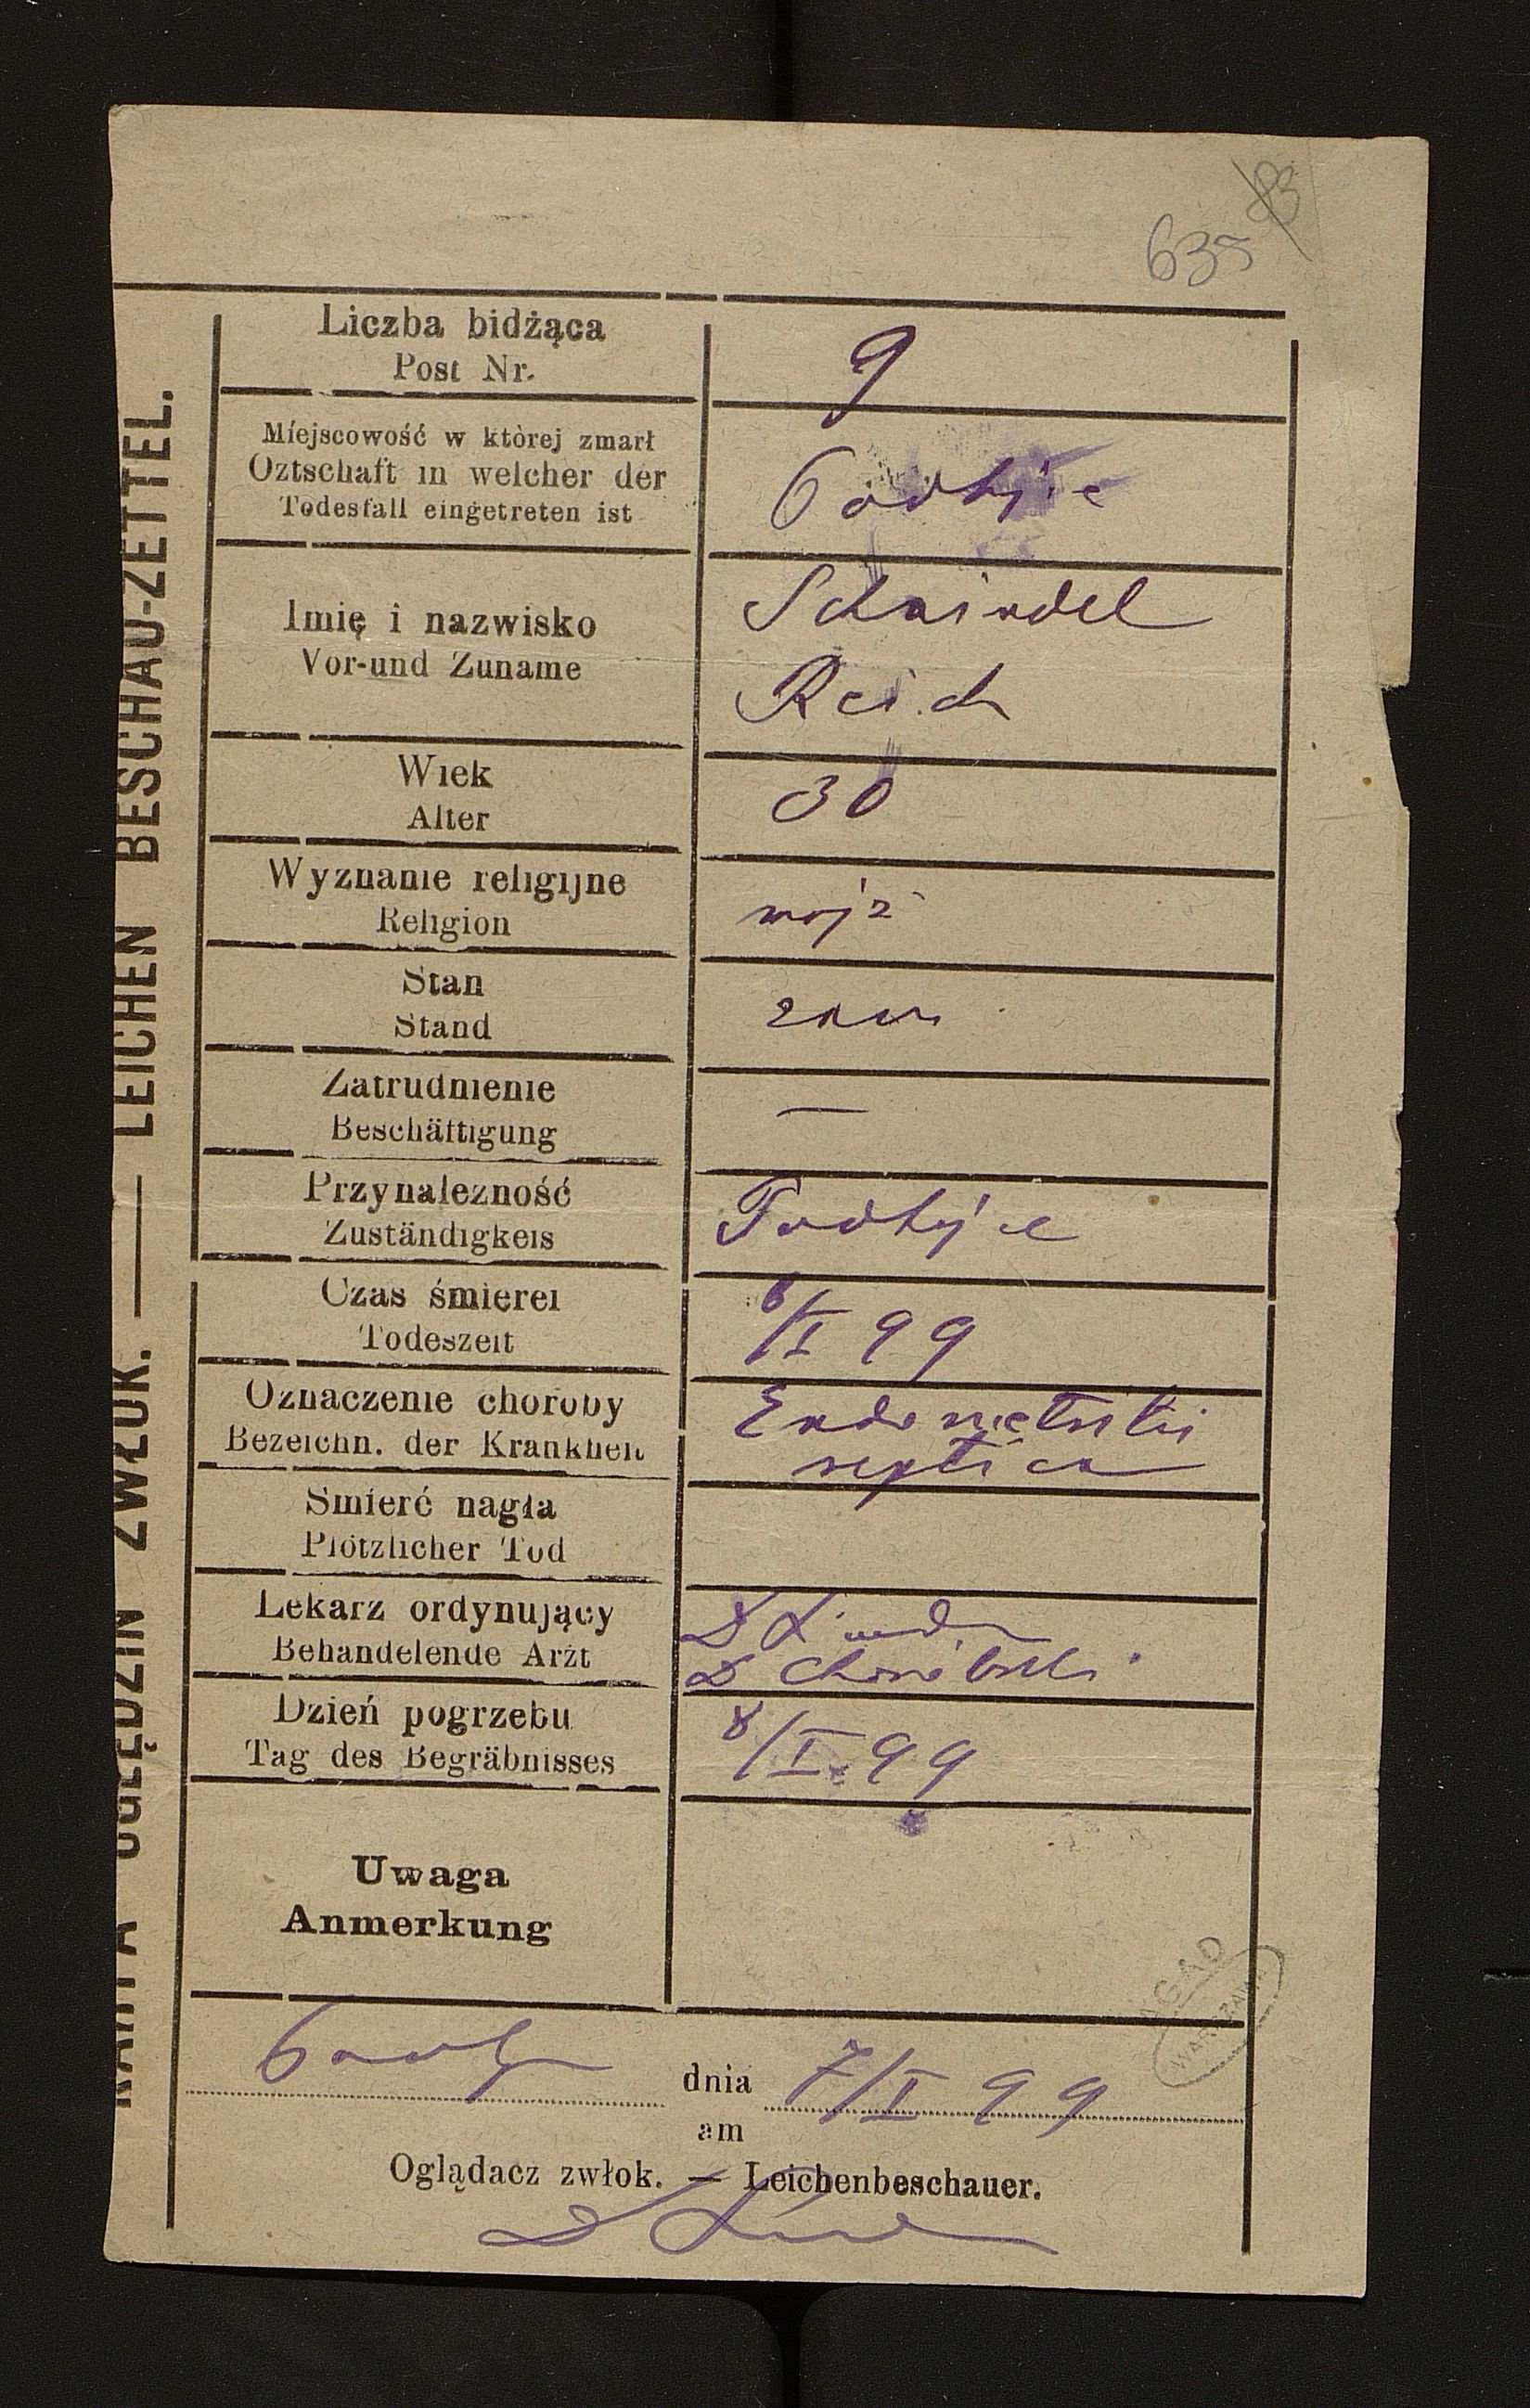 83
635
KARTA OGLĘDZIN ZWŁOK. — LEICHEN BESCHAU-ZETTEL.
Liczba bidżąca
Post Nr.
9
Míejscowość w której zmarł
Oztschaft in welcher der
Todesfall eingetreten ist
Imię i nazwisko
Vor-und Zuname
Scheindel
Reich
Wiek
Alter
30
Wyznanie religijne
Religion
mojż
Stan
Stand
zam
Zatrudnienie
Beschäftigung
—
Przynalezność
Zuständigkeis
Czas śmierei
Todeszeit
6/I 99
Oznaczenie choroby
Bezeichn. der Krankheit
Endometritis
septica
Smierć nagła
Plötzlicher Tod
Lekarz ordynujący
Behandelende Arżt
D
D
Dzień pogrzebu
Tag des Begräbnisses
8/I 99
Uwaga
Anmerkung
AGAD
WARSZAWA
dnia 7/I 99
am
Oglądacz zwłok. — Leichenbeschauer.
D